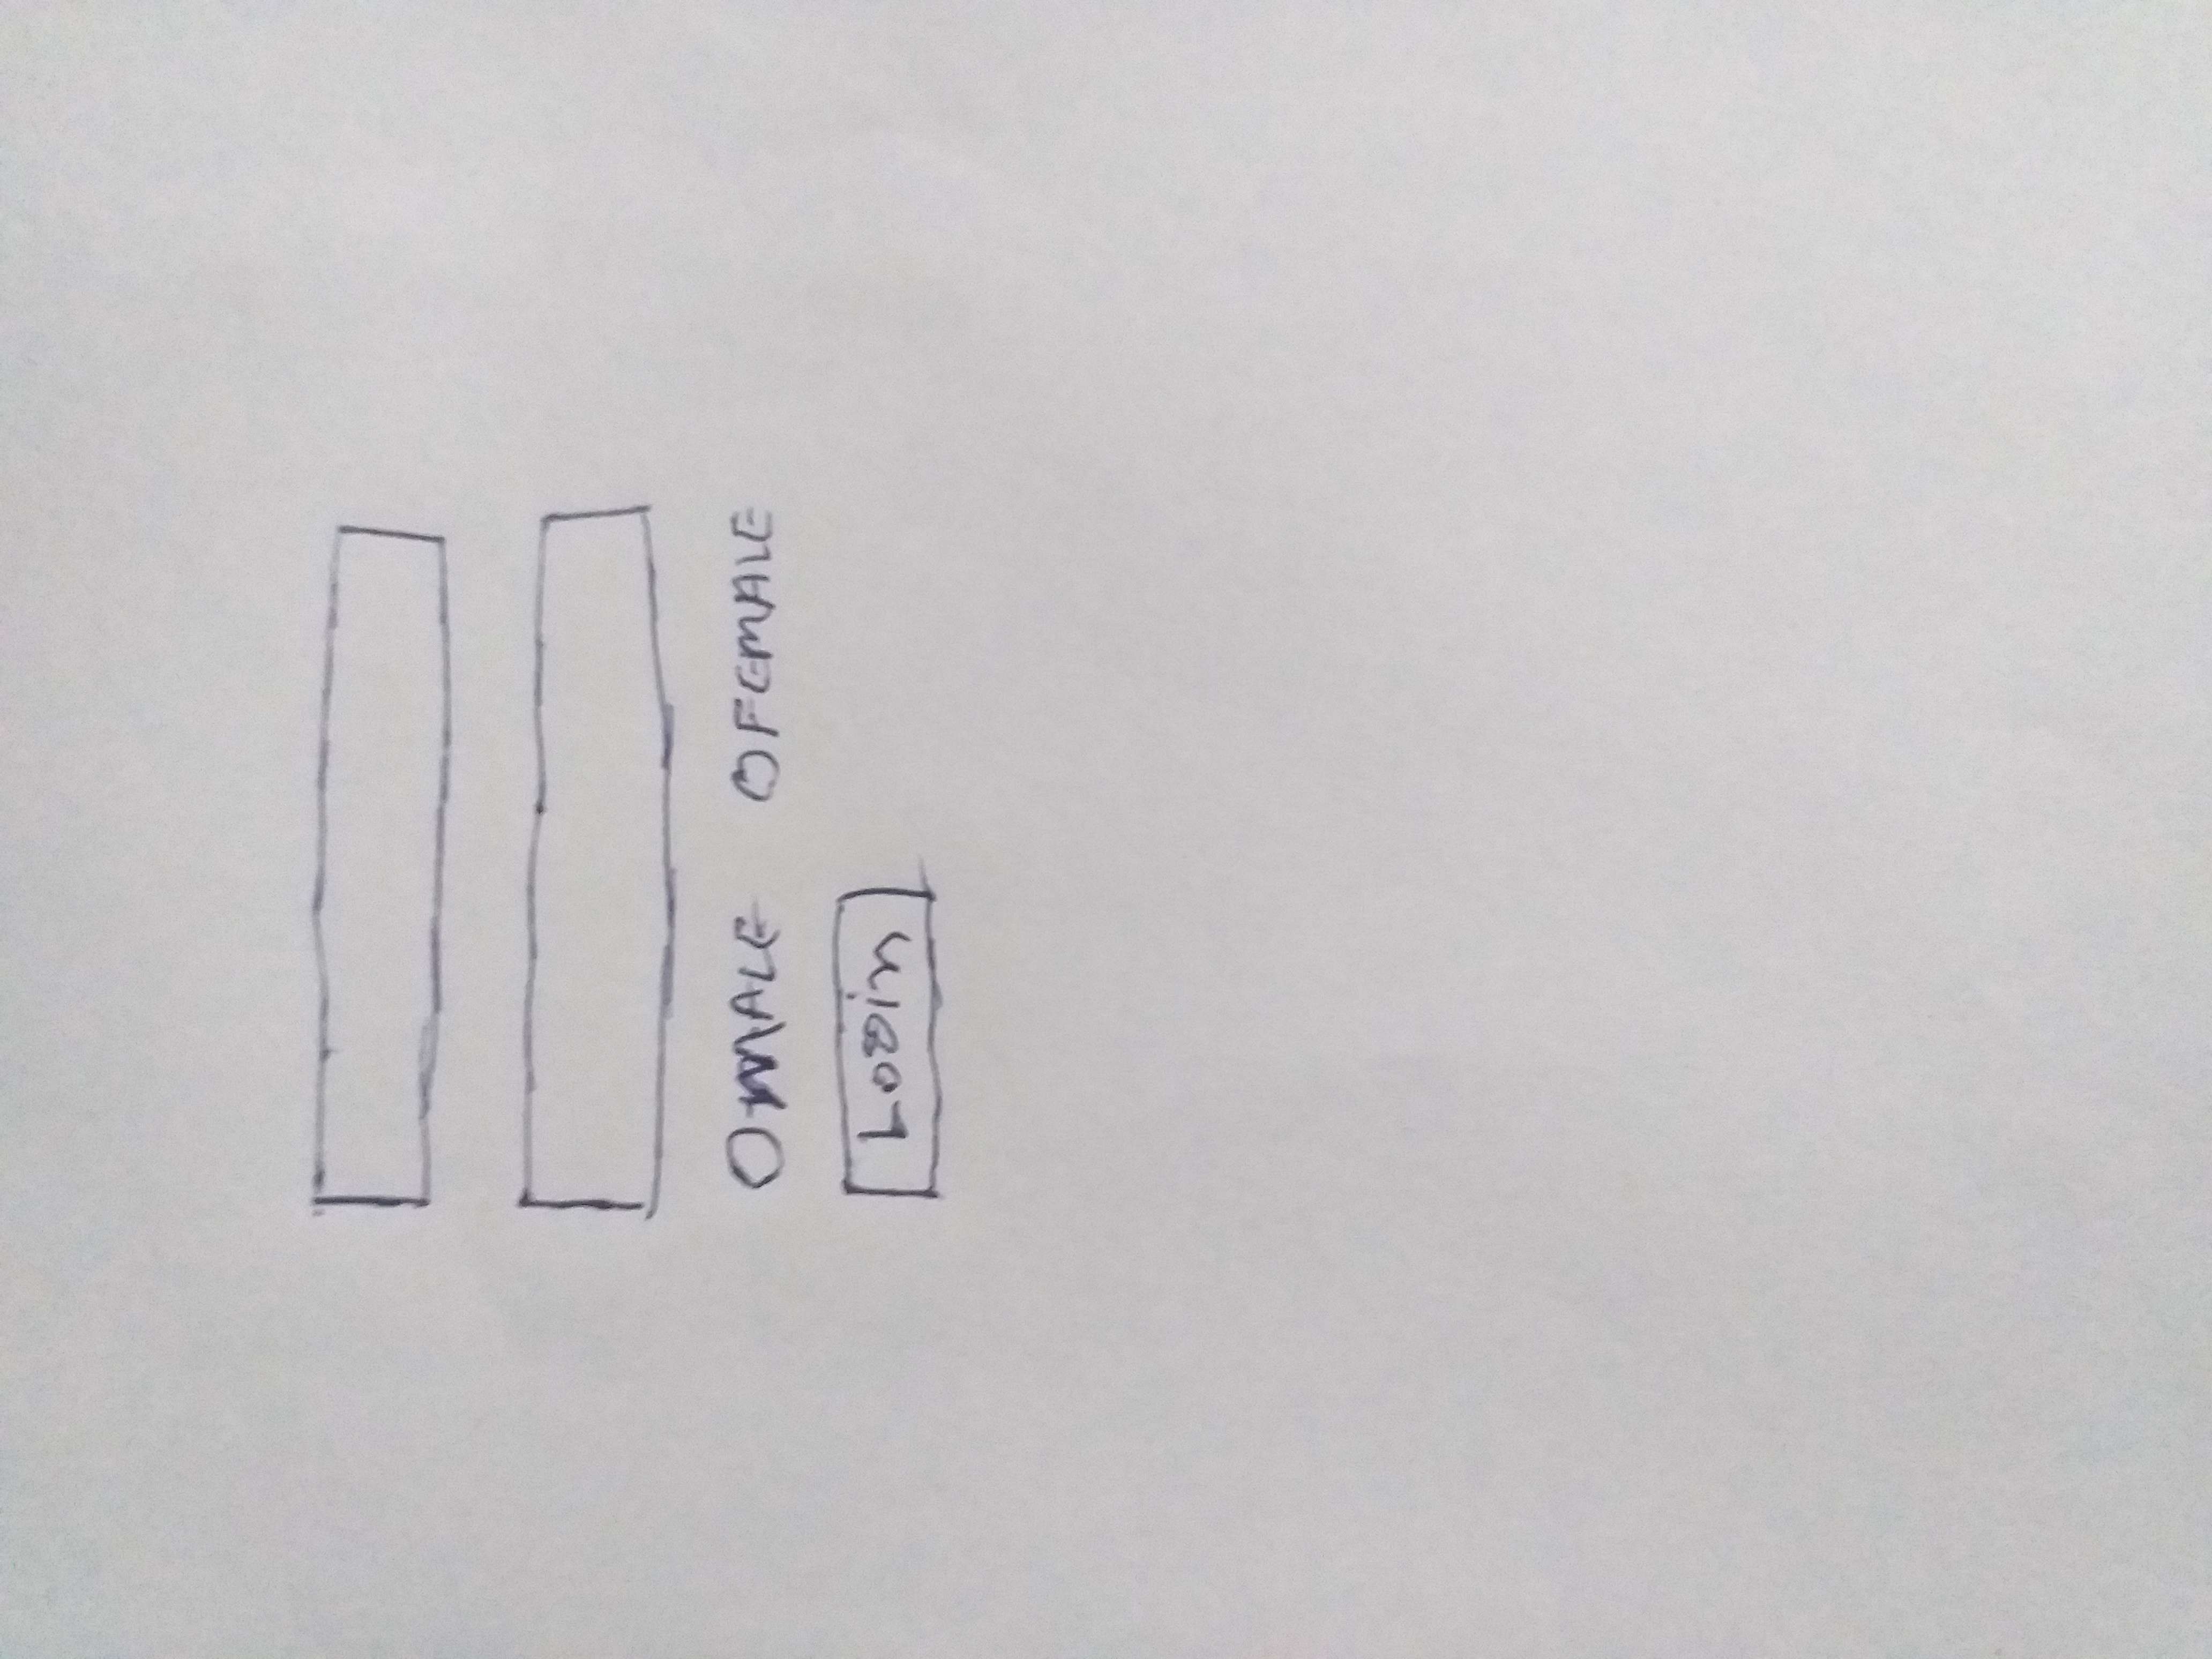 O MALE O FEMALE
Login